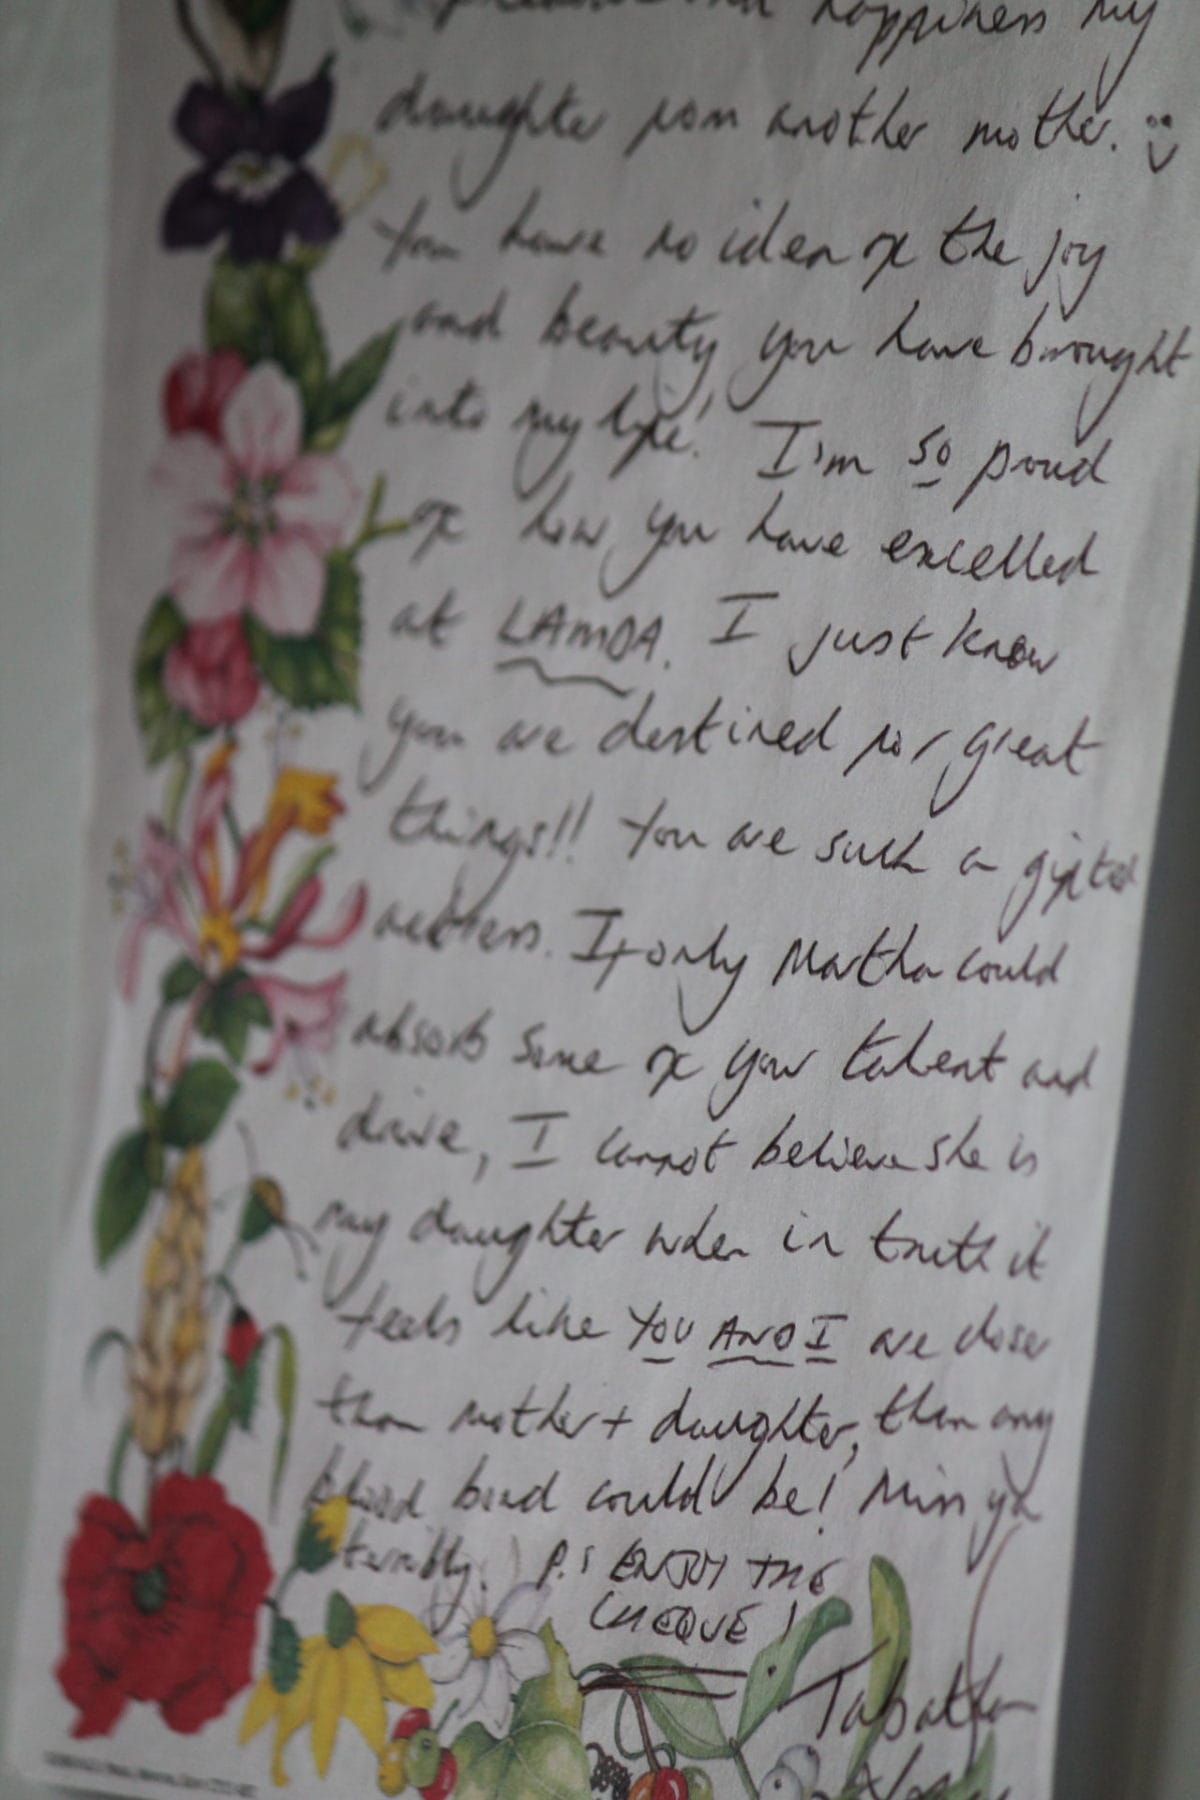 happiness my
daughter from another mother. :)
You have no idea of the joy
and beauty you have brought
into my life! I'm so proud
of how you have excelled
at LAMDA. I just know
you are destined for great
things!! You are such a gifted
actress. If only Martha could
absorb some of your talent and
drive, I cannot believe she is
my daughter when in truth it
feels like YOU AND I are closer
than mother + daughter, than any
blood bond could be! Miss ya
terribly! P.S ENJOY THE
CHEQUE!
Tabatha